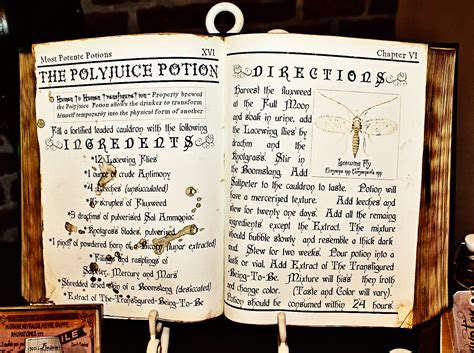 Most Potente Potions
XVI
THE POLYJUICE POTION
Human to Human Transfiguration - Properly brewed
the Polyjuice Potion allows the drinker to transform
himself temporarily into the physical form of another
Fill a fortified leaded cauldron with the following
INGREDENTS
*12 Lacewing Flies
*1 ounce of crude Antimony
*4 Leeches (unsuculated)
*16 scruples of Fluxweed
*3 drachms of pulverised Sal Ammoniac
*Knotgrass blades, pulverised
*1 pinch of powdered horn of a Bicorn (lunar extracted)
*Filings and raspings of
Saltpeter, Mercury and Mars
*Shredded dried skin of a Boomslang (desiccated)
*Extract of The-Transfigured-Being-To-Be
XVI
Chapter VI
DIRECTIONS
Harvest the fluxweed
at the Full Moon
and soak in urine, add
the Lacewing flies by
drachm and the
Knotgrass. Stir in
the Boomslang. Add
Lacewing Fly
Saltpeter to the cauldron to taste. Potion will
have a mercerised texture. Add leeches and
stew for twenty one days. Add all the remaining
ingredients except the Extract. The mixture
should bubble slowly and resemble a thick dark
mud. Stew for two weeks. Pour potion into a
flask or vial. Add Extract of The Transfigured
Being-To-Be. Mixture will hiss then froth
and change color. (Taste and Color will vary).
Potion should be consumed within 24 hours.